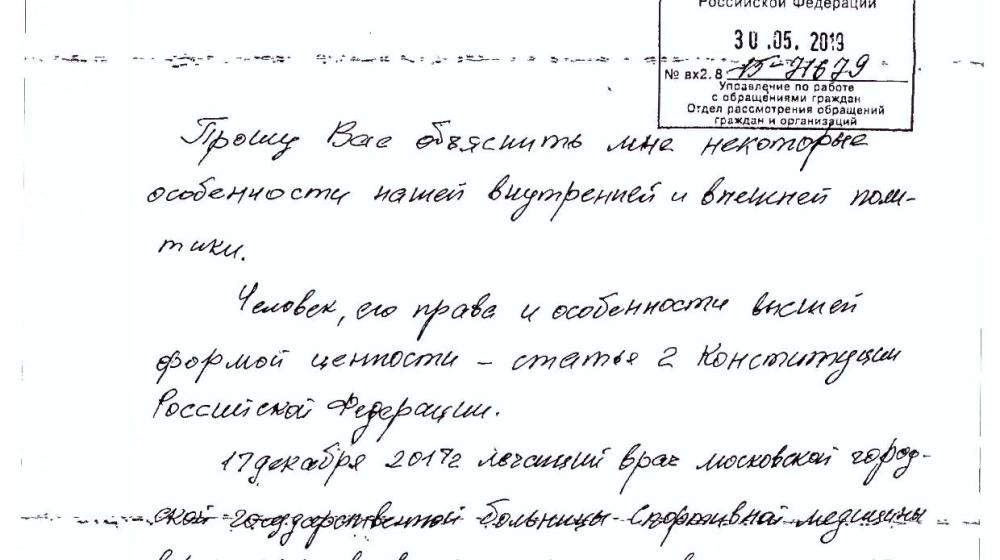 Российской Федерации
30.05.2019
№ вх2.8 15-71679
Управление по работе
с обращениями граждан
Отдел рассмотрения обращений
граждан и организаций
Прошу Вас объяснить мне некоторые
особенности нашей внутренней и внешней поли-
тики.
Человек, его права и особенности высшей
формой ценности – статья 2 Конституции
Российской Федерации.
17 декабря 2017г лечащий врач московской город-
ской государственной больницы спортивной медицины